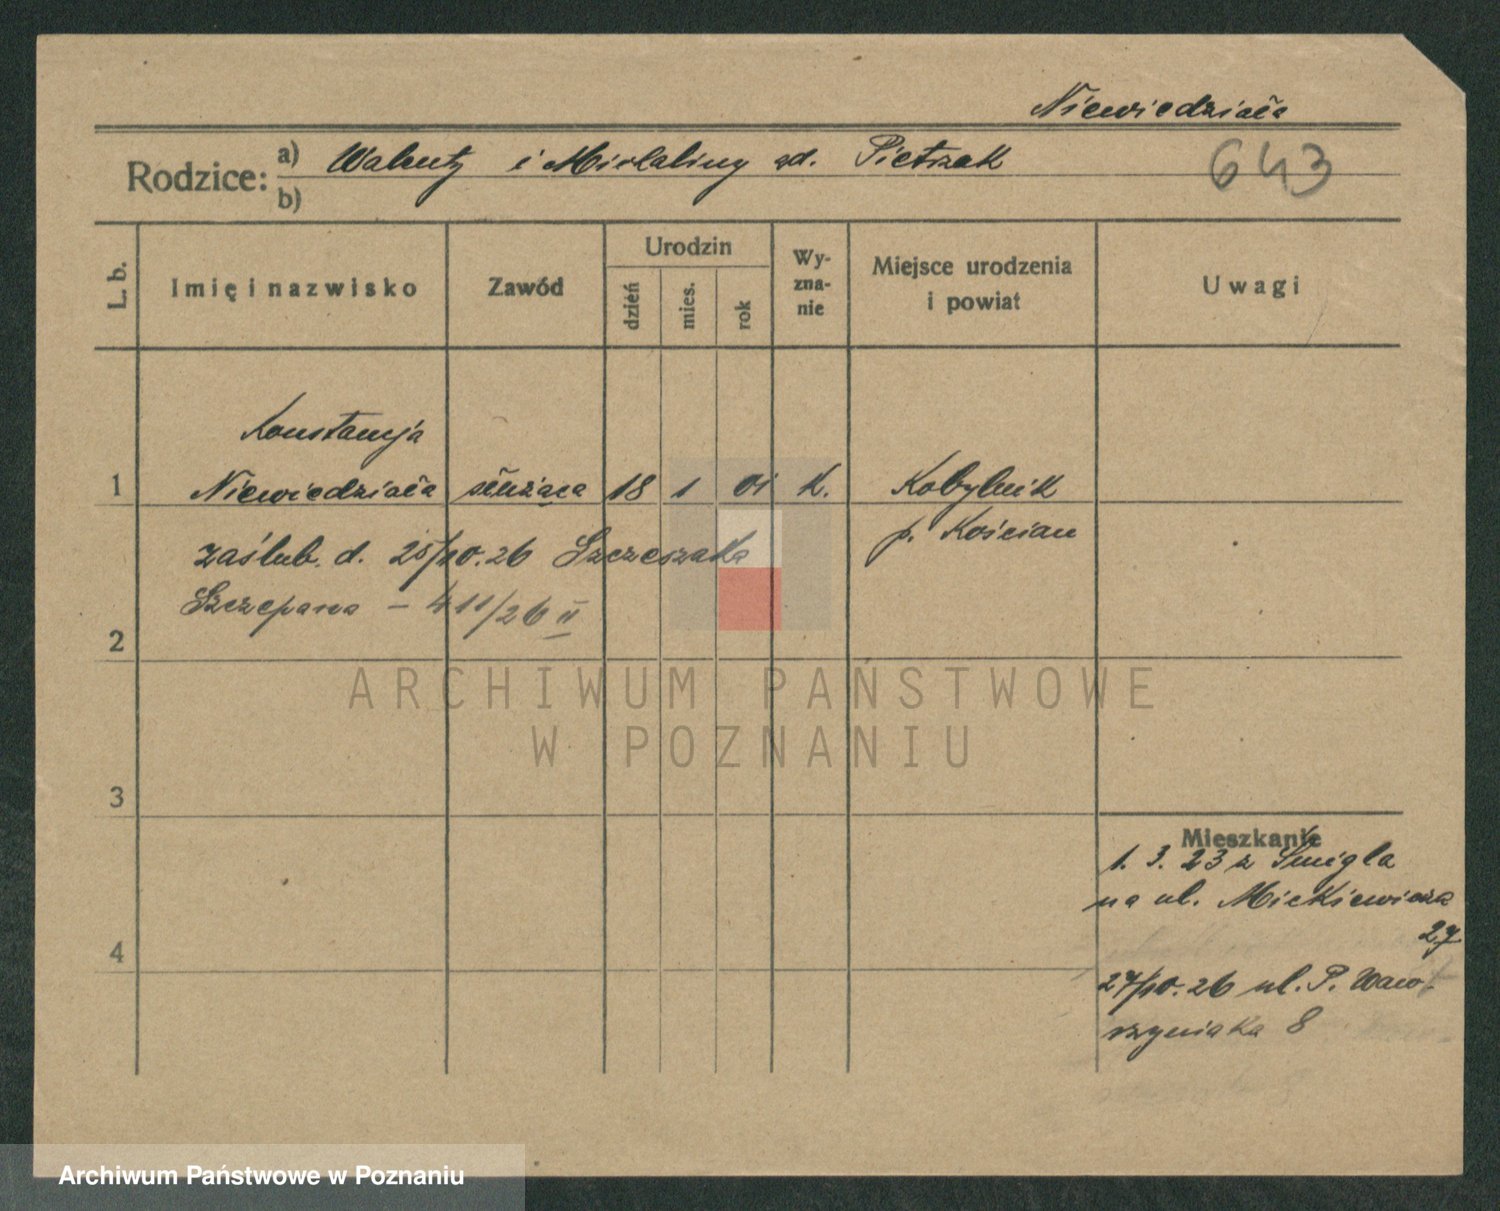 Niewiedziała
Rodzice: a) Walenty i Michaliny zd. Pietrzak
b)
643
L. b.
Imię i nazwisko
Zawód
Urodzin
dzień
mies.
rok
Wy-
zna-
nie
Miejsce urodzenia
i powiat
Uwagi
Konstancja
1 Niewiedziała służąca 18 1 01 k. Kobylnik
p. Kościan
zaślub. d. 25/10.26 Szczeszaka
Szczepana - 411/26 II
2
ARCHIWUM PAŃSTWOWE
W POZNANIU
3
Mieszkanie
1. 3. 23 z Śmigla
na ul. Mickiewicza
27
4
27/10.26 ul. P. Waw-
rzyniaka 8
Archiwum Państwowe w Poznaniu